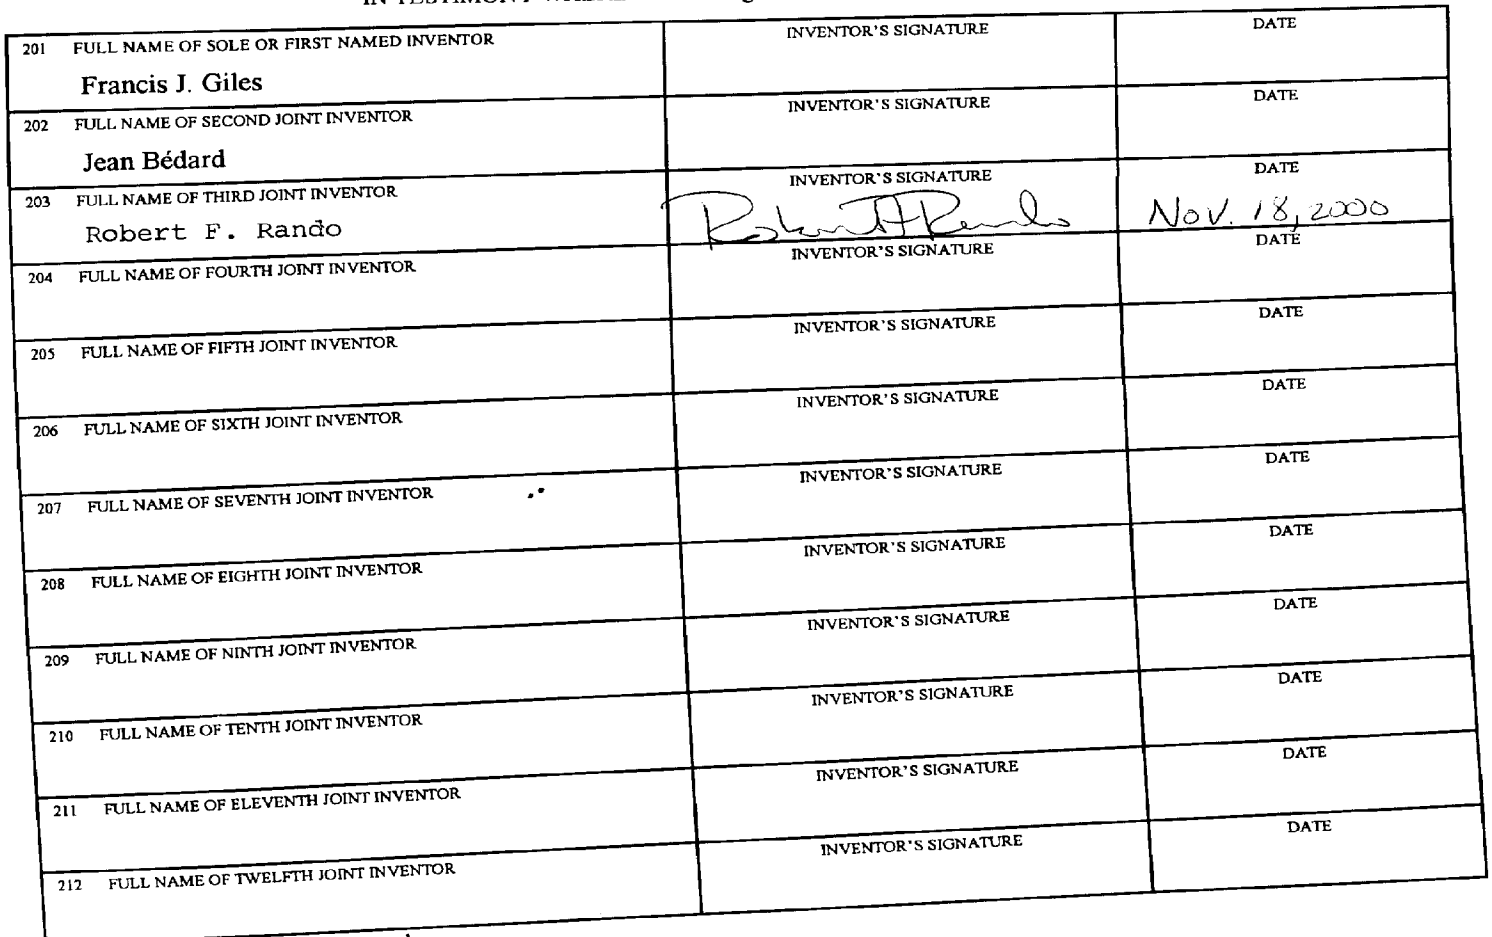 IN TESTIMONY
201 FULL NAME OF SOLE OR FIRST NAMED INVENTOR INVENTOR'S SIGNATURE DATE
Francis J. Giles
202 FULL NAME OF SECOND JOINT INVENTOR INVENTOR'S SIGNATURE DATE
Jean Bédard
203 FULL NAME OF THIRD JOINT INVENTOR INVENTOR'S SIGNATURE DATE
Robert F. Rando Robert F Rando Nov. 18, 2000
204 FULL NAME OF FOURTH JOINT INVENTOR INVENTOR'S SIGNATURE DATE
205 FULL NAME OF FIFTH JOINT INVENTOR INVENTOR'S SIGNATURE DATE
206 FULL NAME OF SIXTH JOINT INVENTOR INVENTOR'S SIGNATURE DATE
207 FULL NAME OF SEVENTH JOINT INVENTOR INVENTOR'S SIGNATURE DATE
208 FULL NAME OF EIGHTH JOINT INVENTOR INVENTOR'S SIGNATURE DATE
209 FULL NAME OF NINTH JOINT INVENTOR INVENTOR'S SIGNATURE DATE
210 FULL NAME OF TENTH JOINT INVENTOR INVENTOR'S SIGNATURE DATE
211 FULL NAME OF ELEVENTH JOINT INVENTOR INVENTOR'S SIGNATURE DATE
212 FULL NAME OF TWELFTH JOINT INVENTOR INVENTOR'S SIGNATURE DATE